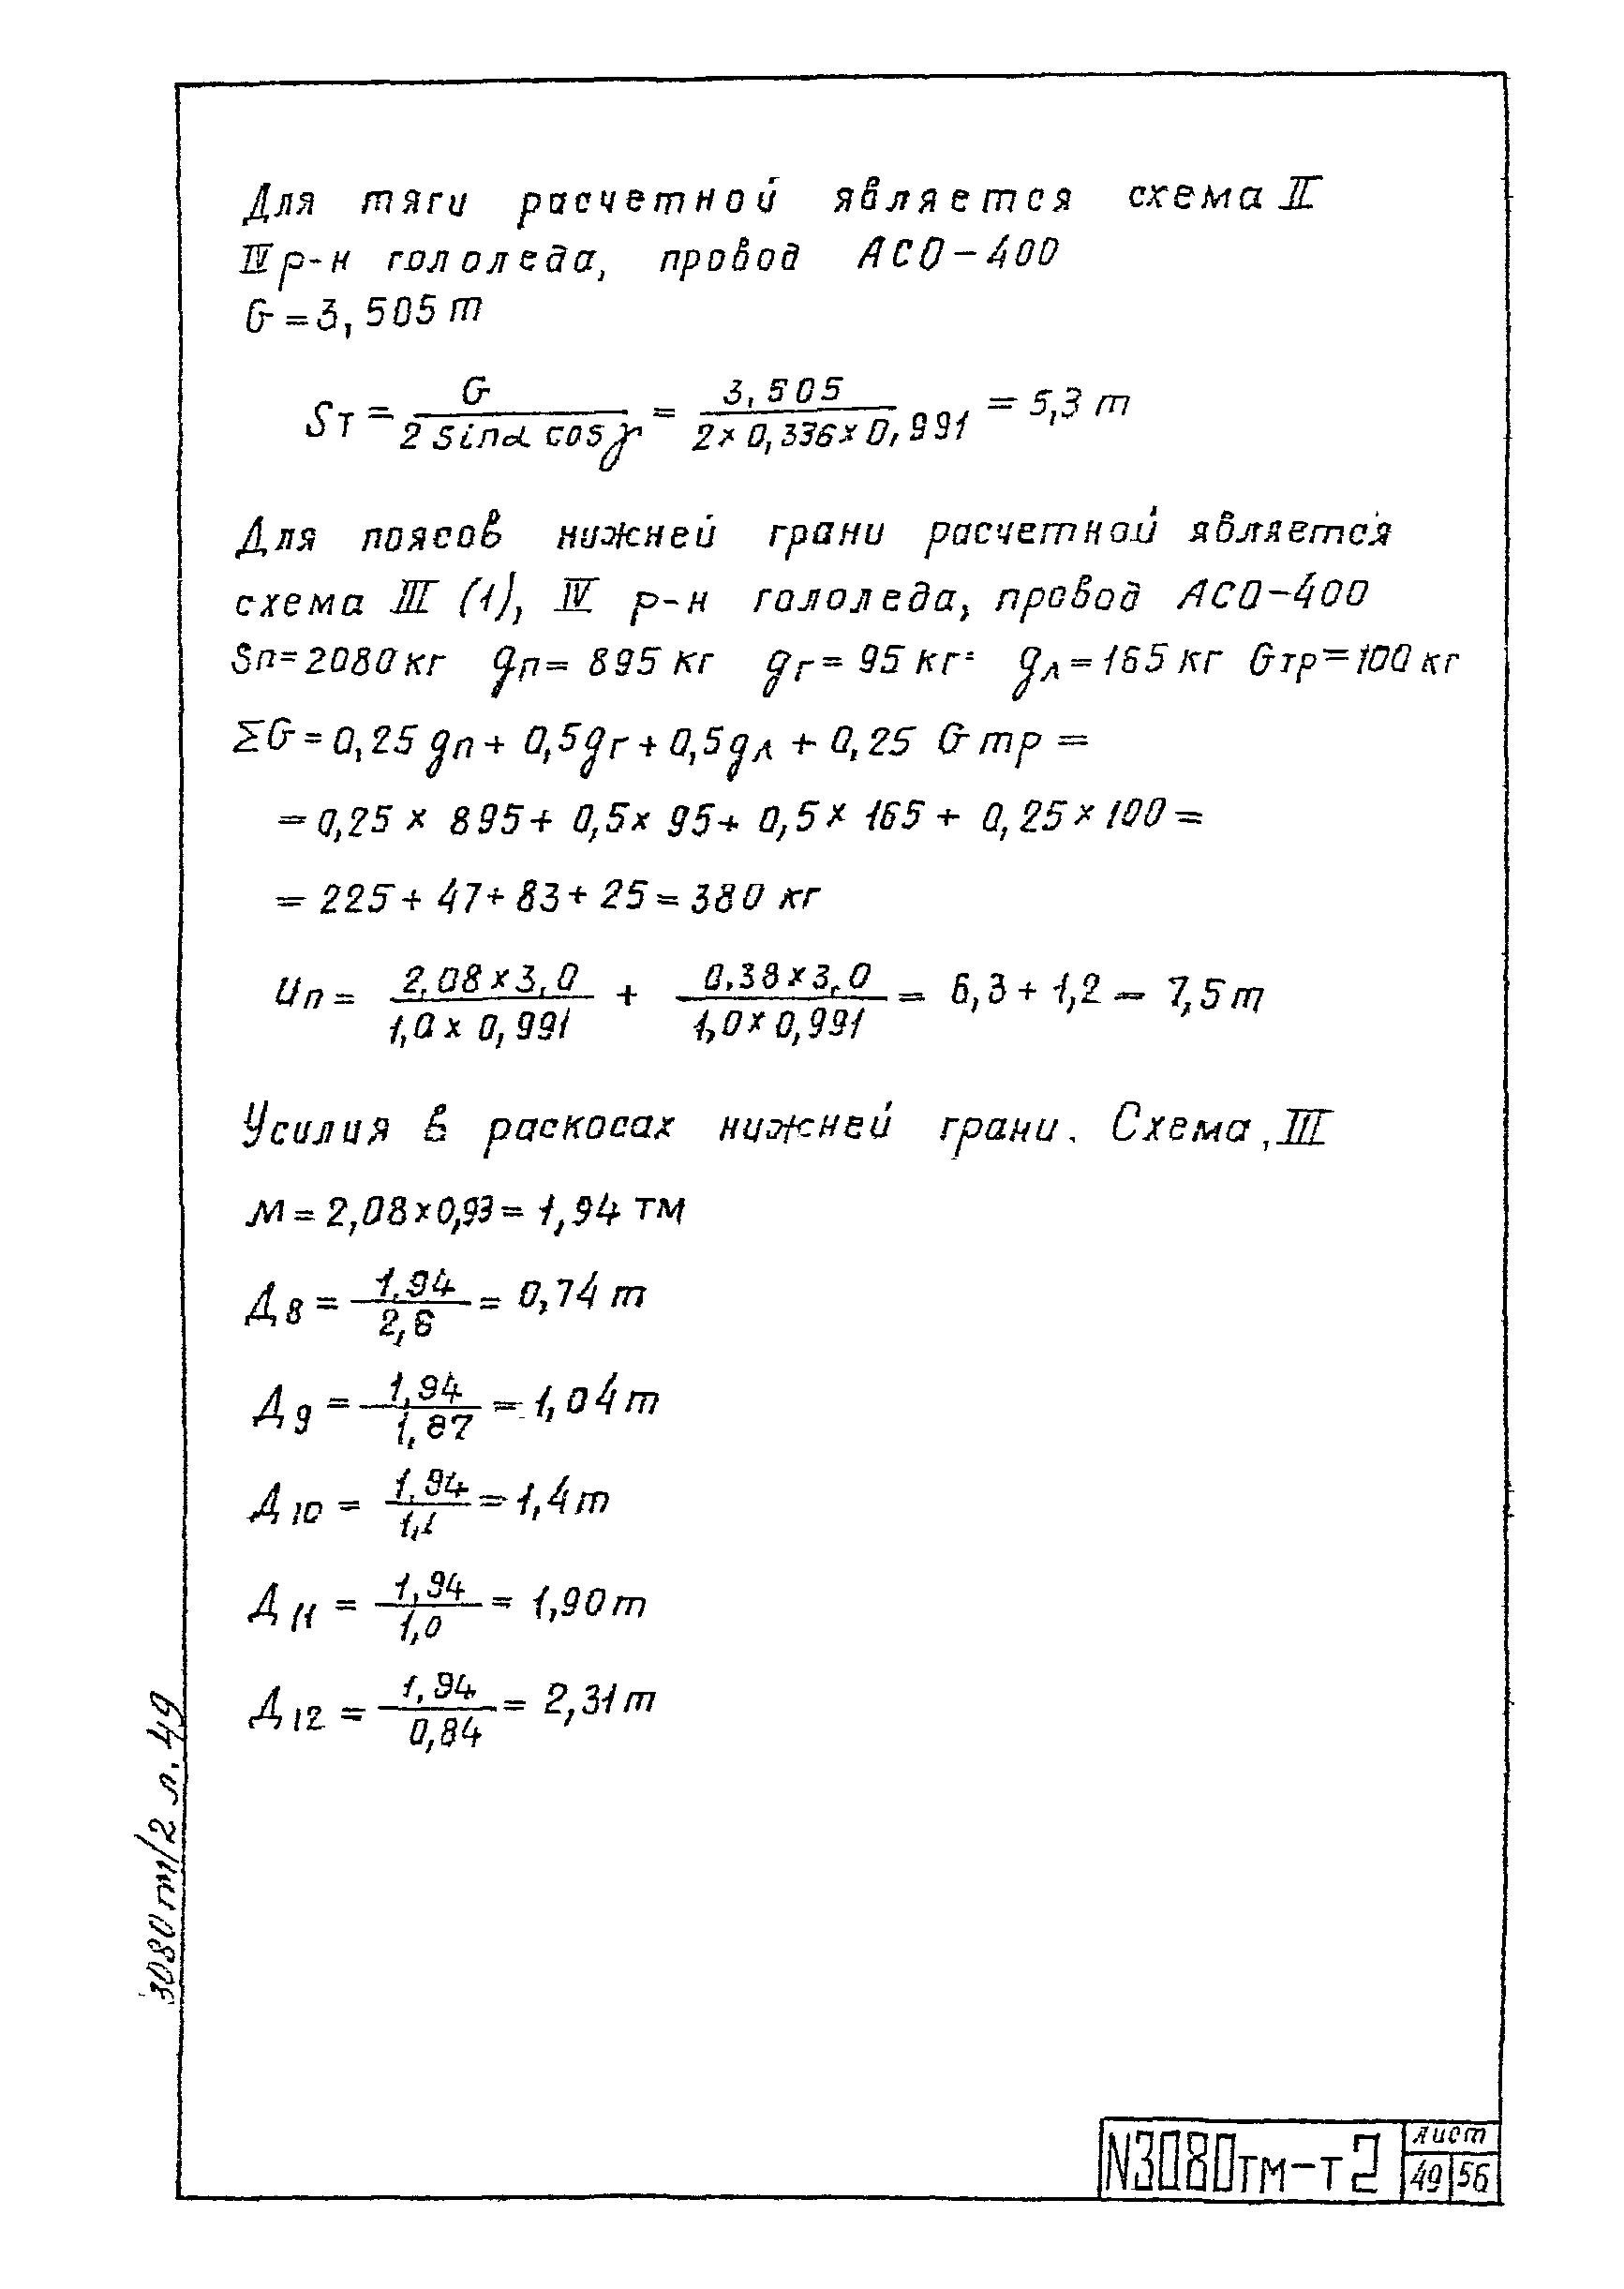 Для тяги расчетной является схема II
IV р-н гололеда, провод АСО-400
G=3,505т
Sт = G / (2 sinα cosγ) = 3,505 / (2×0,336×0,991) = 5,3 т
Для поясов нижней грани расчетной является
схема III (1), IV р-н гололеда, провод АСО-400
Sп=2080кг gп=895 кг gг=95 кг gл=165 кг Gтр=100 кг
ΣG=0,25gп+0,5gг+0,5gл+0,25 Gтр=
=0,25×895+0,5×95+0,5×165+0,25×100=
=225+47+83+25=380 кг
Uп= (2,08×3,0) / (1,0×0,991) + (0,38×3,0) / (1,0×0,991) = 6,3+1,2= 7,5т
Усилия в раскосах нижней грани. Схема, III
М=2,08×0,93=1,94 тм
Д8 = 1,94 / 2,6 = 0,74т
Д9 = 1,94 / 1,87 = 1,04т
Д10 = 1,94 / = 1,4т
Д11 = 1,94 / 1,0 = 1,90т
Д12 = 1,94 / 0,84 = 2,31т
3080тм/2 л. 49
N3080тм-т2
лист
49 56